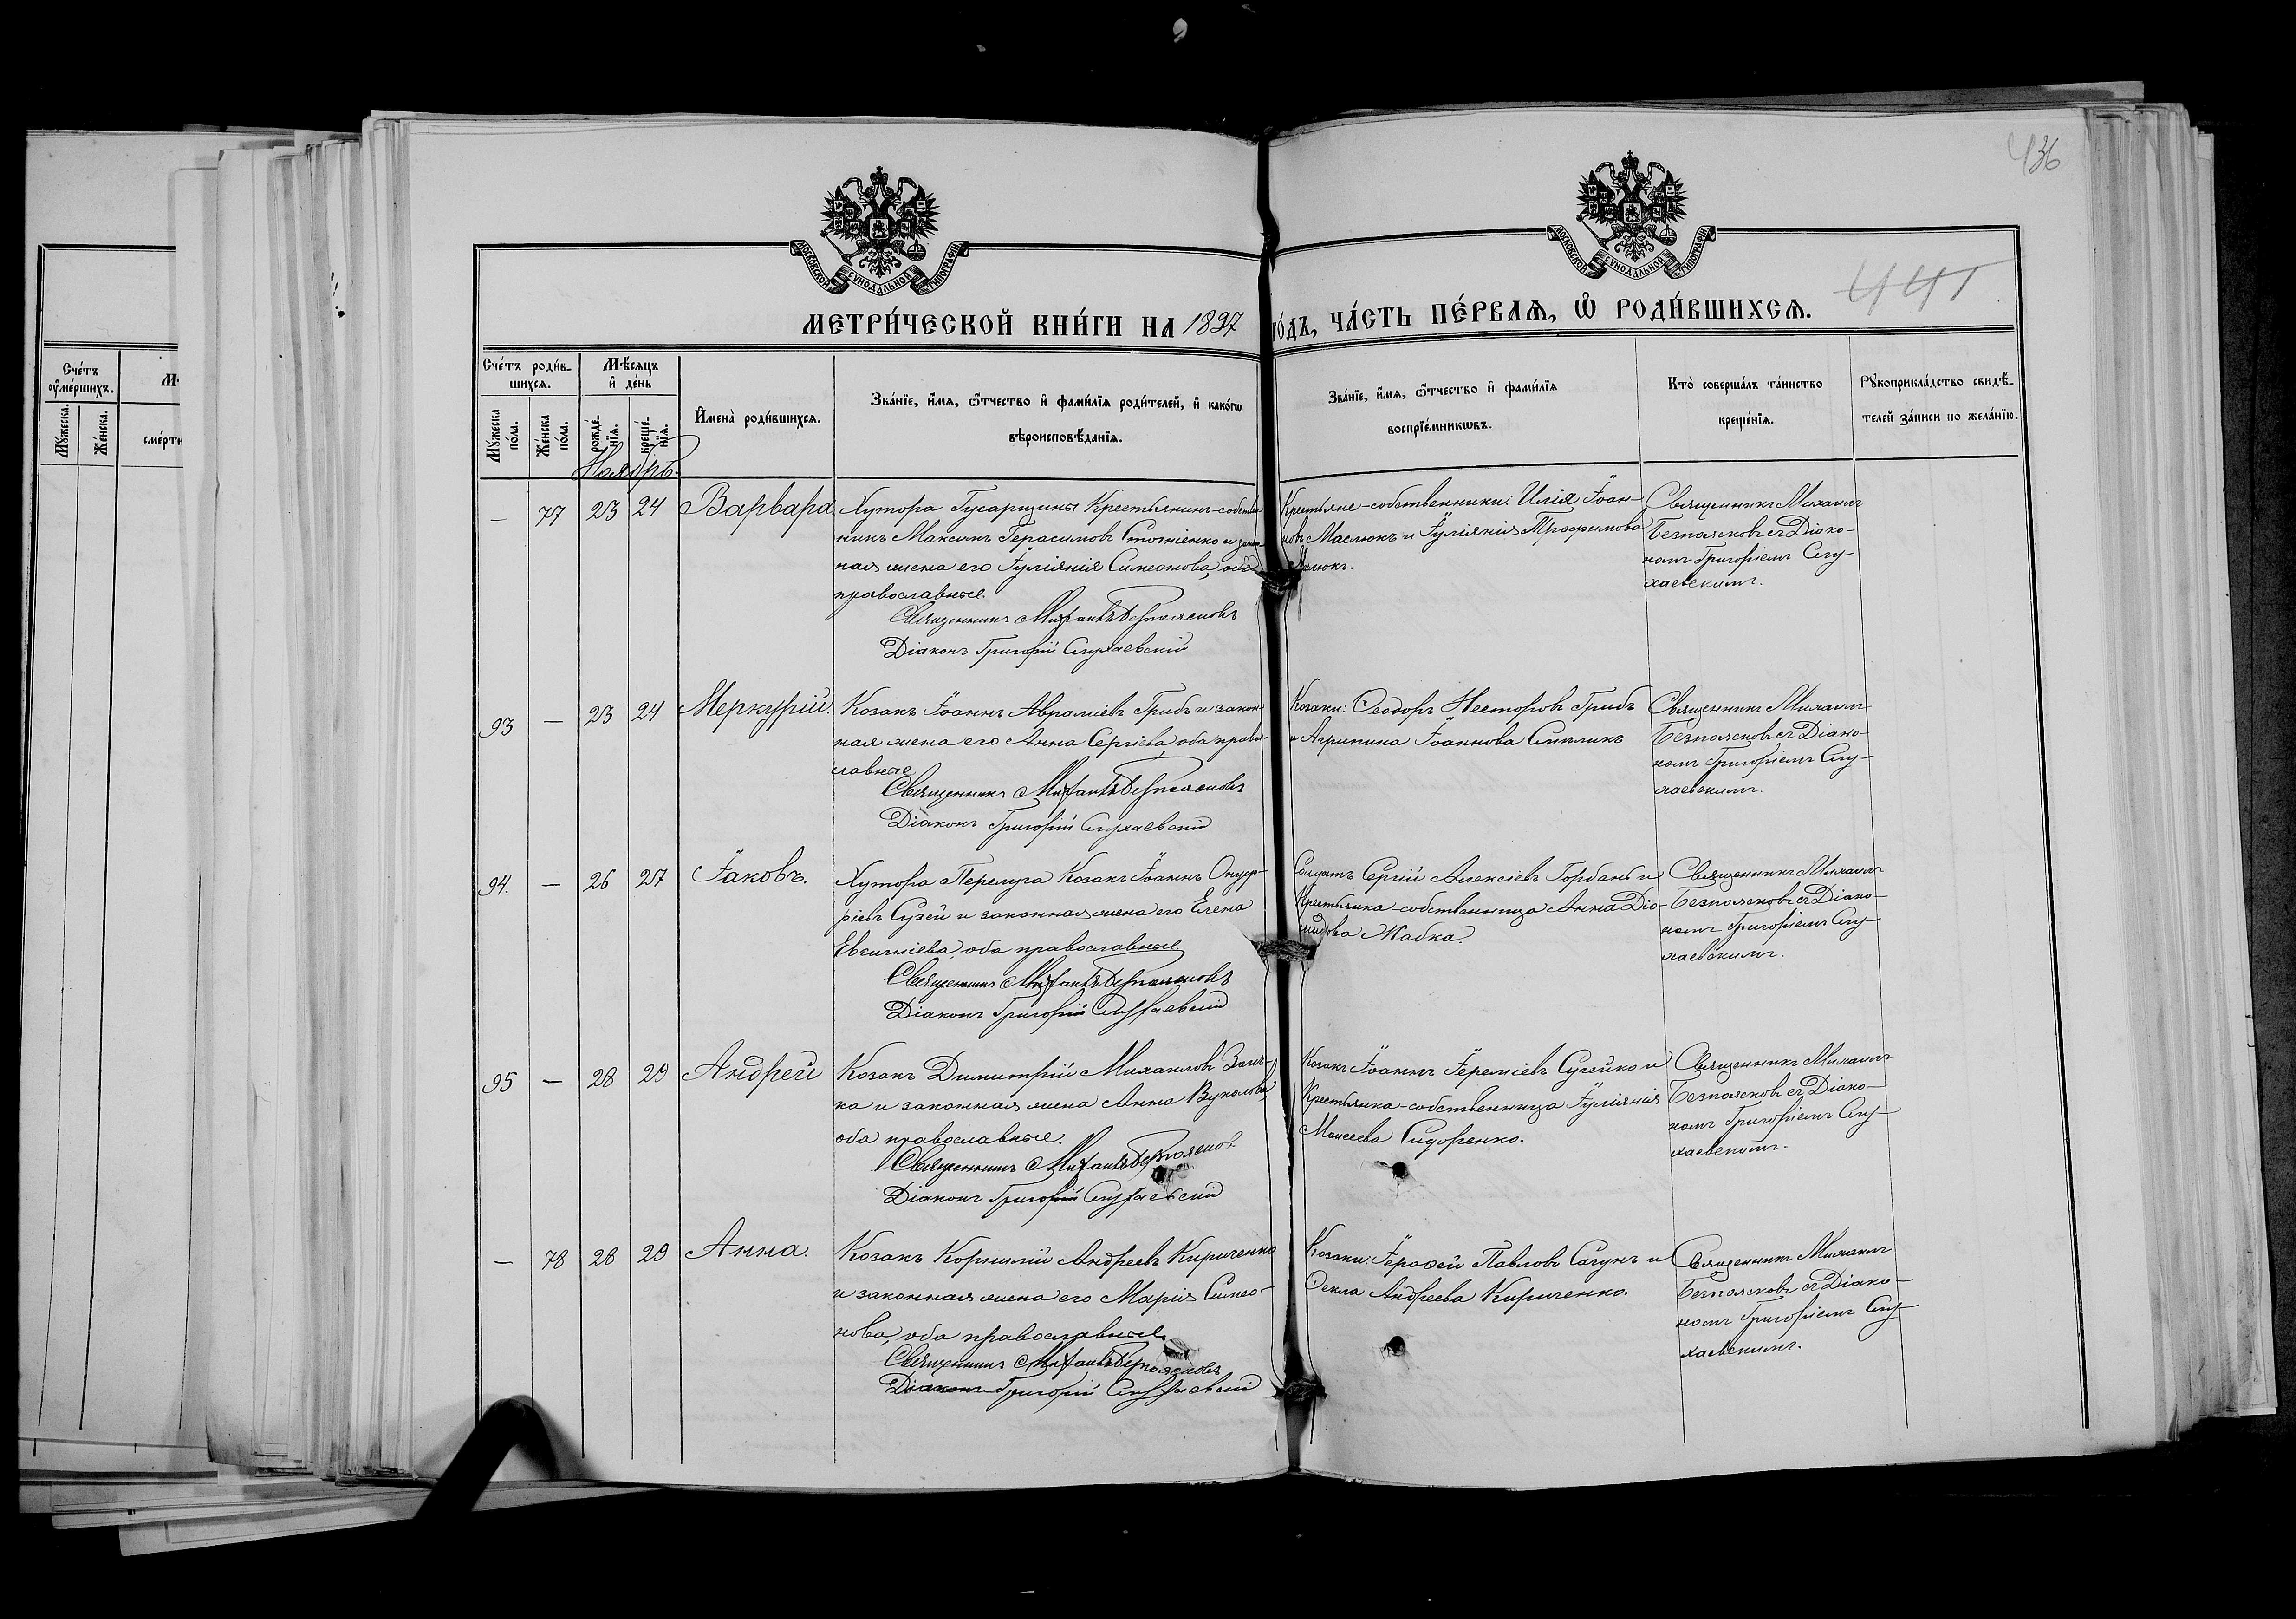 436
МОСКОВСКОЙ СѴНОДАЛЬНОЙ ТИПОГРАФІИ
МОСКОВСКОЙ СѴНОДАЛЬНОЙ ТИПОГРАФІИ
441
МЕТРИ́ЧЕСКОЙ КНИ́ГИ НА 1897 ГО́ДЪ, ЧА́СТЬ ПЕ́РВАѦ, Ѿ РОДИ́ВШИХСѦ.
Сче́тъ
оу҆ме́ршихъ.
Мꙋ́жеска.
Же́нска.
сме́рти
Сче́тъ роди́в-
шихсѧ.
Мꙋ́жеска по́ла.
Же́нска по́ла.
Мѣ́сѧцъ
и҆ де́нь
рожде́-нїѧ.
креще́-нїѧ.
И҆мена̀ роди́вшихсѧ.
Зва́нїе, и҆́мѧ, ѻ҆́тчество и҆ фами́лїѧ роди́телей, и҆ како́гѡ
вѣроисповѣ́данїѧ.
Зва́нїе, и҆́мѧ, ѻ҆́тчество и҆ фами́лїѧ
воспрїе́мникѡвъ.
Кто̀ соверша́лъ та́инство
креще́нїѧ.
Рꙋкоприкла́дство свидѣ́-
телей за́писи по жела́нїю.
Ноябрь.
— 77 23 24 Варвара
Хутора Гусарщины Крестьянинъ-собствен
никъ Максимъ Герасимовъ и закон
ная жена его Іуліянія Симеонова, оба
православные.
Священникъ Михаилъ Безпоясковъ
Діаконъ Григорій Слухаевскій
Крестьяне-собственники: Илія Іоан-
новъ Маслюкъ и Іуліянія Трофимова
Священникъ Михаилъ
Безпоясковъ съ Діако-
номъ Григоріемъ Слу-
хаевскимъ.
93 — 23 24 Меркурій.
Козакъ Іоаннъ Авраміевъ Грибъ и закон
ная жена его Анна Сергіева, оба право-
славные
Священникъ Михаилъ Безпоясковъ
Діаконъ Григорій Слухаевскій
Козаки: Ѳеодоръ Несторовъ Грибъ
и Агрипина Іоаннова
Священникъ Михаилъ
Безпоясковъ съ Діако-
номъ Григоріемъ Слу-
хаевскимъ.
94. — 26 27 Іаковъ.
Хутора Перелуга Козакъ Іоаннъ Онуф-
ріевъ и законная жена его Елена
Евсигніева, оба православные
Священникъ Михаилъ Безпоясковъ
Діаконъ Григорій Слухаевскій
Солдатъ Сергій Алексіевъ Горбань и
Крестьянка-собственница Анна Діо-
мидова Жабка.
Священникъ Михаилъ
Безпоясковъ съ Діако-
номъ Григоріемъ Слу-
хаевскимъ.
95 — 28 29 Андрей
Козакъ Димитрій Михаиловъ
ка и законная жена Анна Вуколова,
оба православные.
Священникъ Михаилъ Безпоясков.
Діаконъ Григорій Слухаевскій
Козакъ Іоаннъ Іереміевъ Сугейко и
Крестьянка-собственница Іуліянія
Моисеева Сидоренко.
Священникъ Михаилъ
Безпоясковъ съ Діако-
номъ Григоріемъ Слу-
хаевскимъ.
— 78 28 29 Анна.
Козакъ Корнилій Андреевъ Кириченко
и законная жена его Марія Симео-
нова, оба православные.
Священникъ Михаилъ Безпоясковъ
Діаконъ Григорій Слухаевскій
Козаки: Іерофей Павловъ Сагунъ и
Ѳекла Андреева Кириченко.
Священникъ Михаилъ
Безпоясковъ съ Діако-
номъ Григоріемъ Слу-
хаевскимъ.